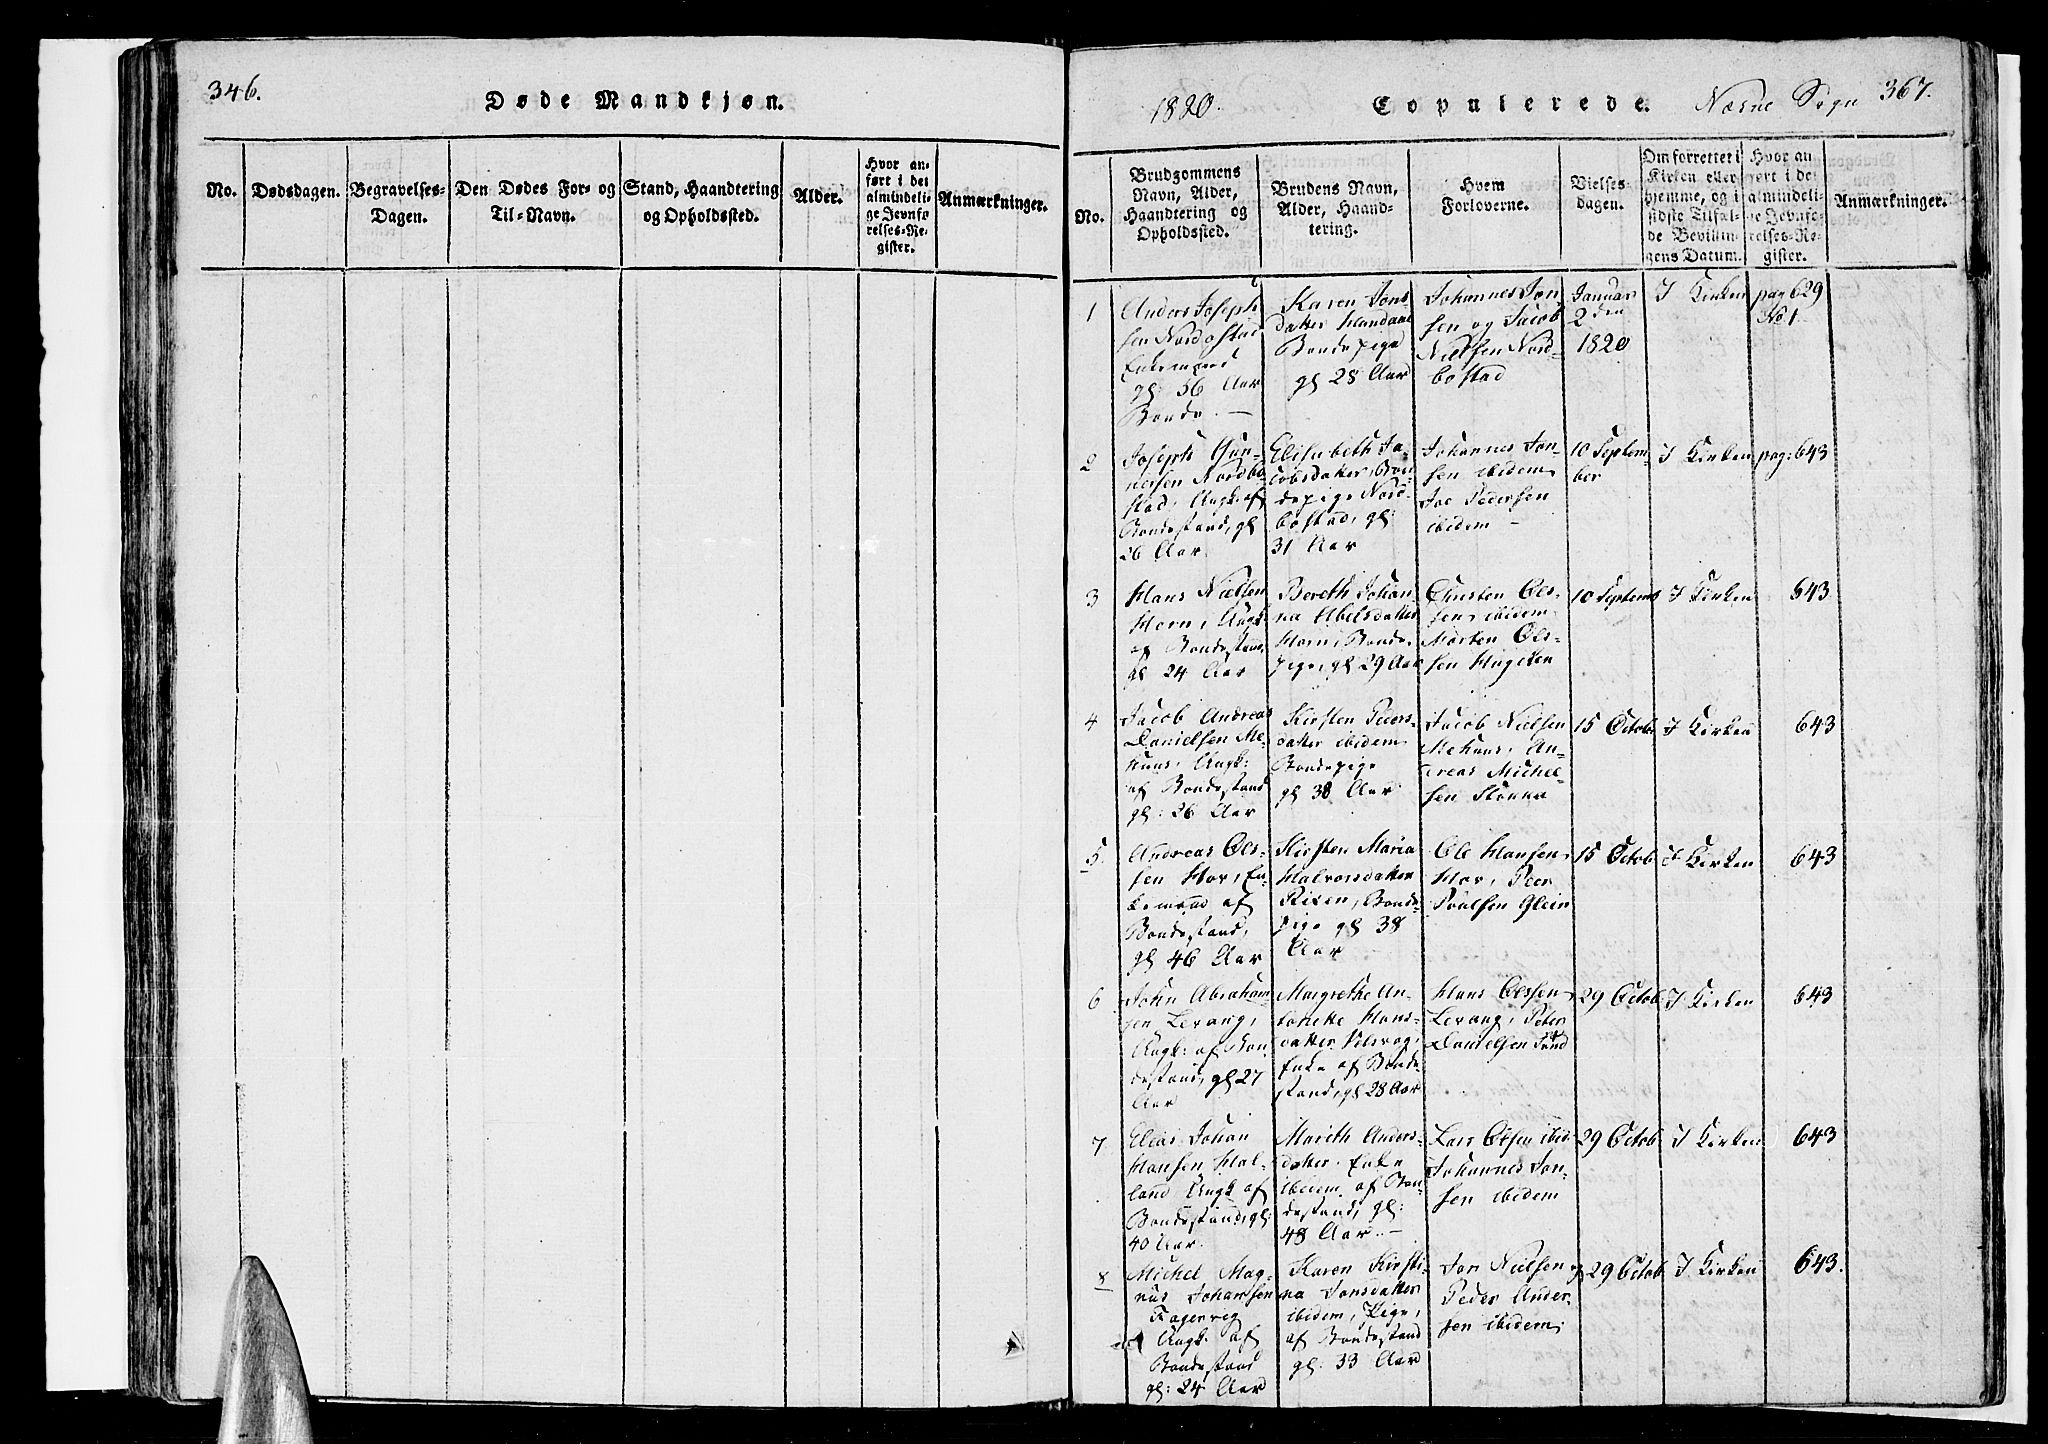 346.
Døde Mandkjøn.
No.
Dødsdagen.
Begravelses-
Dagen.
Den Dødes For- og
Til-Navn.
Stand, Haandtering
og Opholdssted.
Alder.
Hvor an-
ført i det
almindeli-
ge Jevnfø-
relses-Re-
gister.
Anmærkninger.
1820.
Copulerede.
Næsne Sogn
367.
No.
Brudgommens
Navn, Alder,
Haandtering og
Opholdssted.
Brudens Navn,
Alder, Haand-
tering.
Hvem
Forloverne.
Vielses-
dagen.
Om forrettet i
Kirken eller
hjemme, og i
sidste Tilfæl-
de Bevillin-
gens Datum.
Hvor an
ført i det
almindeli-
ge Jevnfø-
relses-Re-
gister.
Anmærkninger.
1
Anders Joseph
sen Nordostad
Enkemand
gl: 56 Aar
Bonde. —
Karen Jons
datter Handaae
Bondepige
gl 28 Aar
Johannes Jon-
sen og Jacob
Nielsen Nord-
bostad
Januar
2 den
1820
I Kirken
pag 629
No 1
2
Joseph Gun-
nersen Nordbo-
stad, Ungk: af
Bondestand, gl
26 Aar
Elisabeth Ja-
cobsdatter, Bon-
depige Nord-
bostad, gl:
31 Aar
Johannes Jon-
sen ibidem
Joe Pedersen
ibidem —
10 Septem-
ber
I Kirken
pag: 643
3
Hans Nielsen
Horn, Ungk:
af Bondestand,
gl 24 Aar
Bereth Johan-
na Abelsdatter
Horn, Bonde-
pige, gl 29 Aar
Christen Ols-
sen ibidem
Morten Ols-
sen Hugelen
10 Septemb
I Kirken
643
4
Jacob Andreas
Danielsen Me-
huus, Ungk:
af Bondestand
gl: 26 Aar
Kirsten Peders-
datter ibidem
Bondepige
gl 38 Aar
Jacob Nielsen
Mehuus, An-
dreas Michel-
sen Stonna
15 Octob
I Kirken
643
5.
Andreas Ols-
sen Hov, En-
kemand af
Bondestand,
gl 46 Aar
Kirsten Maria
Halvorsdatter
Risen, Bonde-
pige gl 38
Aar
Ole Hansen
Hov, Peer
Poulsen Glein
15 Octob
I Kirken
643
6
John Abraham-
sen Levang,
Ungk: af Bon-
destand, gl 27
Aar
Margrethe An-
tonette Hans-
datter Vilsvog,
Enke af Bonde-
stand, gl 28 Aar
Hans Olssen
Levang, Peter
Danielsen Sund
29 Octob
I Kirken
643
7
Elias Johan
Hansen Hal-
land Ungk af
Bondestand, gl:
40 Aar.
Mareth Anders-
datter Enke
ibidem af Bon-
destand, gl:
48 Aar. —
Lars Olsen ibid
Johannes Jon-
sen ibidem
29 Octob
I Kirken
643
8
Michel Mag-
nus Johansen
Fagervig
Ungk. af
Bondestand
gl: 24 Aar
Karen Kirsti-
na Jonsdatter
ibidem, Pige,
af Bondestand
gl: 33 Aar
Jon Nielsen og
Peder Ander
sen ibidem
29 Octob
I Kirken
643.